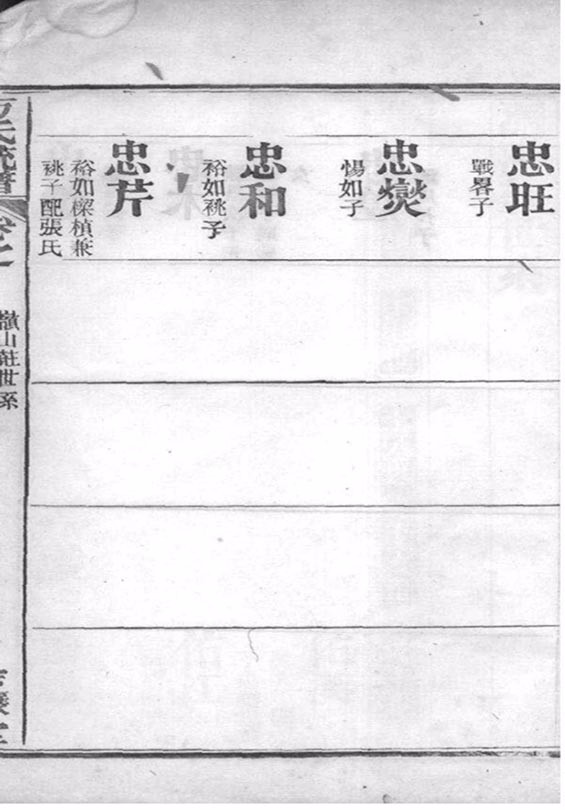 忠旺
戰畧子
忠爕
惕如子
忠和
裕如祧子
忠芹
裕如樑楨兼
祧子配張氏
嶺山莊世系